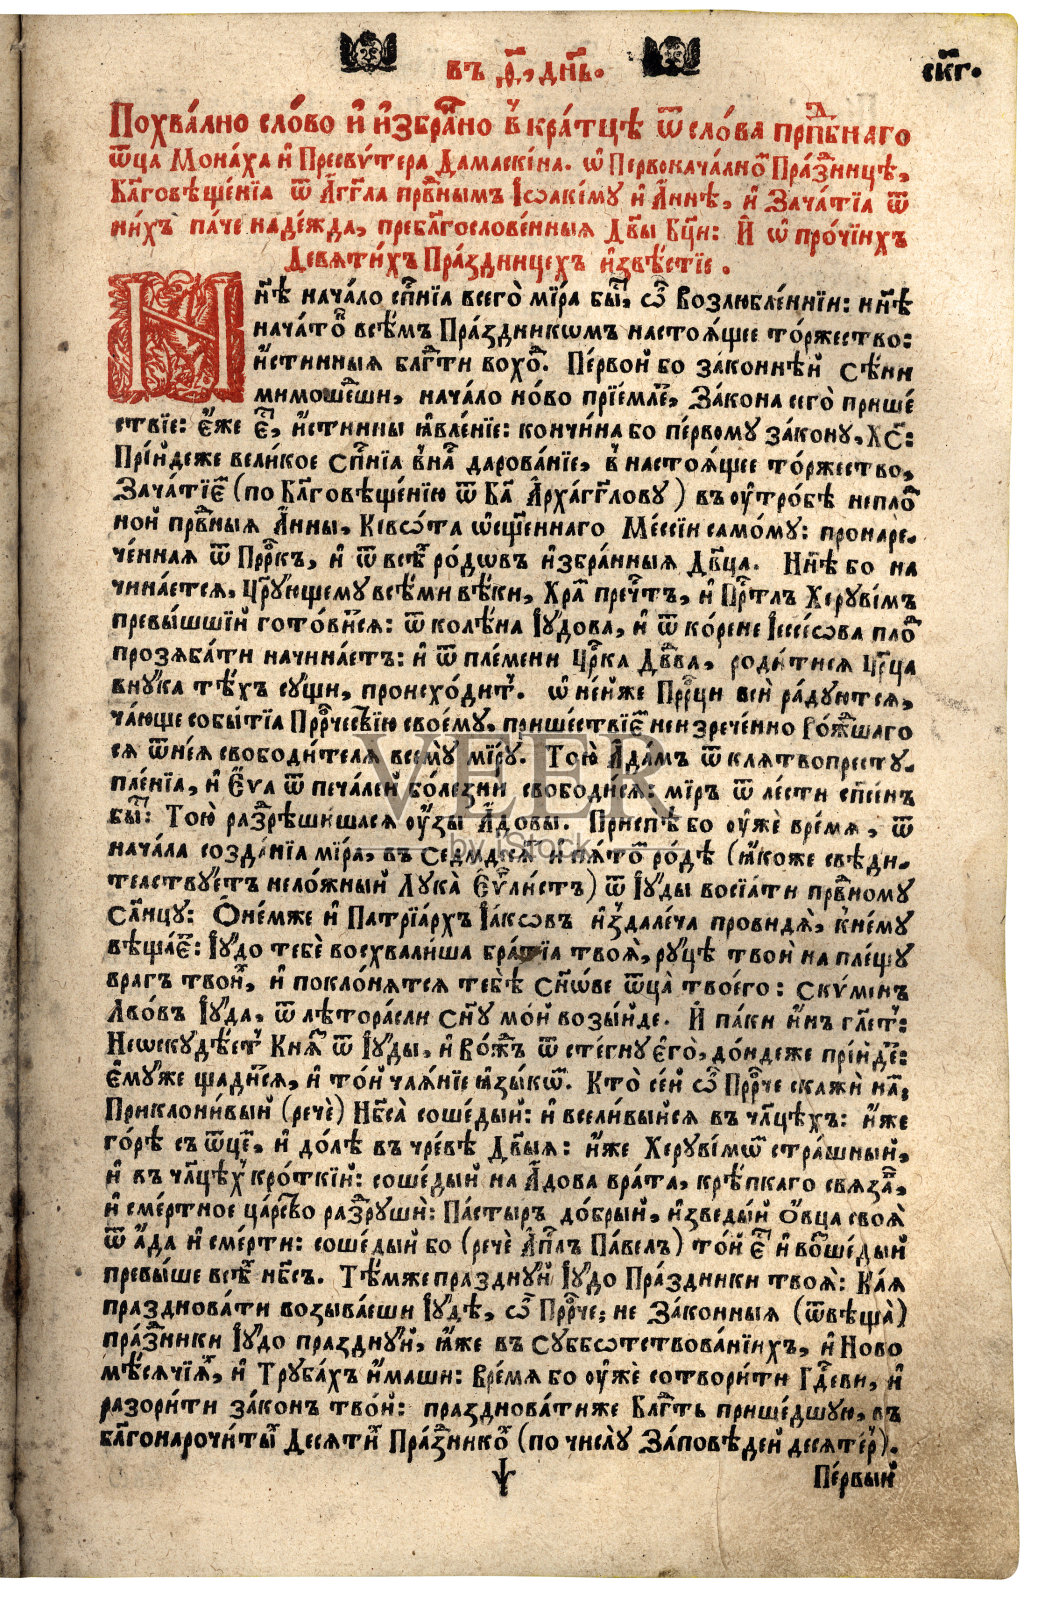 въ ѳ҃, дн҃ь.
ск҃г.
Похва́лно сло́во и҆ и҆збра́но в̾кра́тцѣ ѿ сло́ва прпⷣбнаго
ѿца Мона́ха и҆ Пресвѵ́тера Дамаски́на. ѡ҆ Первонача́лноⷨ Пра́зⷣницѣ,
Бл҃говѣще́нїа ѿ А҆́гг҃ла прв҃нымъ І҆ѡаки́му и҆ А҆́ннѣ, и҆ Зача́тїа ѿ
ни́хъ па́че наде́жда, пребл҃гослове́нныя Дв҃ы Бц҃и: И҆ ѡ҆ про́чїихъ
Девяти́хъ Пра́здницехъ и҆звѣ́стїе.
Нн҃ѣ нача́ло сп҃нїя всего̀ мі́ра бы́ⷭ, ѽ Возлю́бленнїи: нн҃ѣ
нача́тоⷦ всѣ́мъ Пра́здникѡмъ настоя́щее то́ржество:
и҆́стинныя блгⷣти вохо́ⷣ. Пе́рвой бо зако́ннѣй Сѣ́ни
мимоше́дши, нача́ло но́во прїе́млеⷮ, Зако́на сего̀ прише́
ствїе: є҆́же є҆́ⷭ, и҆́стинны ꙗ҆вле́нїе: кончи́на бо пе́рвому зако́ну, Хс҃:
Прїи́деже вели́кое Сп҃нїя в̾на́ⷭ дарова́нїе, в̾настоя́щее то́ржество,
Зача́тїеⷨ (по Бл҃говѣще́нїю ѿ Бг҃а А҆рха́гг҃лову) въ ѹ҆тро́бѣ непло́ⷣ
ной прв҃ныя А҆́нны, Кївѡ́та ѡ҆сщ҃еннаго Месси́и самому: пронаре
че́нная ѿ Прⷪ҇ркъ, и҆ ѿ всѣ́ⷯ ро́дѡвъ и҆збра́нныя Дв҃ца. Нн҃ѣ бо на
чина́ется, Цр҃ꙋющему всѣ́ми вѣ́ки, Хра́ⷨ преч҃тъ, и҆ Прⷭ҇тлъ Херꙋві́мъ
превы́шшїй гото́вится: ѿ колѣ́на І҆ю́дова, и҆ ѿ ко́рене І҆ессе́ѡва пло́ⷣ
прозяба́ти начина́етъ: и҆ ѿ пле́мени Цр҃ка Дв҃да, роди́тися Цр҃ца
внꙋ́ка тѣ́хъ сꙋ́щи, происхо́дитъ. ѡ҆ не́йже Прⷪ҇рцы вси̏ ра́дꙋются,
ча́юще событїа Прⷪ҇рческїю своемꙋ, прише́ствїеⷨ неизрече́нно Рожⷣшаго
ся ѿ нея̀ свободи́теля всемꙋ̀ мі́рꙋ. То́ю А҆да́мъ ѿ кля́твопрестꙋ
пле́нїа, и҆ Е҆́ѵа ѿ печа́лей боле́зни свободи́ся: мі́ръ ѿ ле́сти спс҃енъ
бы́ⷭ: То́ю разⷣрѣши́шася ѹ҆́зы А҆́довы. Приспѣ̀ бо ѹ҆жѐ вре́мя, ѿ
нача́ла созда́нїа мі́ра, въ Се́дмдеся́ⷮ и҆ пя́тоⷨ ро́дѣ (ꙗ҆́коже свѣдѣ
телствꙋ́етъ нело́жный Лꙋка̀ Е҆ѵⷢ҇ли́стъ) ѿ І҆ю́ды возсїа́ти прв҃номꙋ
Сл҃нцꙋ: Ѻ҆не́мже и҆ Патрїа́рхъ І҆а́кѡвъ и҆зⷣале́ча прови́дя, к̾немꙋ
вѣща́еⷮ: І҆ю́до тебѐ восхвали́ша бра́тїа твоя̀, рꙋ́цѣ твоѝ на плещꙋ̀
вра́гъ твои́ⷯ, и҆ покло́нятся тебѣ̀ Сн҃ове ѿца̀ твоего̀: Скѵ́менъ
Лво́въ І҆ю́да, ѿ лѣ́торасли Сн҃ꙋ мо́й возы́йде. И҆ па́ки и҆́нъ гл҃етъ:
Неѡскꙋдѣ́етъ Кня́ⷥ ѿ І҆ю́ды, и҆ Во́ждъ ѿ сте́гнꙋ є҆гѡ̀, до́ндеже прїи́деⷮ:
Е҆мꙋ́же щади́ся, и҆ то́й ча́янїе ꙗ҆зы́кѡⷨ. Кто̀ се́й ѽ Прⷪ҇рче скажѝ на́ⷨ,
Приклони́вый (рече̏) Нб҃са̀ соше́дый: и҆ всели́выйся въ чл҃цѣхъ: и҆́же
го́рѣ съ ѿце́ⷨ, и҆ до́лѣ въ чре́вѣ Дв҃ыя: и҆́же Херꙋві́мѡⷨ стра́шный,
и҆ въ чл҃цѣ́хъ кро́ткїй: соше́дый на А҆́дова врата̀, крѣ́пкаго связа́ⷡ,
и҆ сме́ртное ца́рство разⷣрꙋшѝ: Па́стыръ до́брый, и҆зведы́й Ѻ҆́вца своя̀
ѿ а҆́да и҆ сме́рти: соше́дый бо (рече̏ А҆пⷭ҇лъ Па́велъ) то́й є҆́ⷭ и҆ возше́дый
превы́ше всѣ́ⷯ нб҃съ. Тѣ́мже пра́зднꙋй І҆ю́до Пра́здники твоя̀: Ка́я
пра́здновати возыва́еши І҆ю́дѣ, ѽ Прⷪ҇рче; не Зако́нныя (ѿвѣща̀)
пра́зⷣники І҆ю́до пра́зднꙋй, ꙗ҆́же въ Сꙋббѡ́тствованїихъ, и҆ Ново
мѣ́сячїяⷯ, и҆ Трꙋба́хъ и҆́маши: Вре́мя бо ѹ҆жѐ сотвори́ти Гдⷭ҇еви, и҆
разори́ти зако́нъ тво́й: пра́здноватиже Блгⷣть прише́дшꙋю, въ
бл҃гонарочи́тыⷯ Десяти́ⷯ Пра́зⷣникоⷯ (по числꙋ̀ За́повѣдей десяте́рⷯ).
Пе́рвый
VEER
by iStock